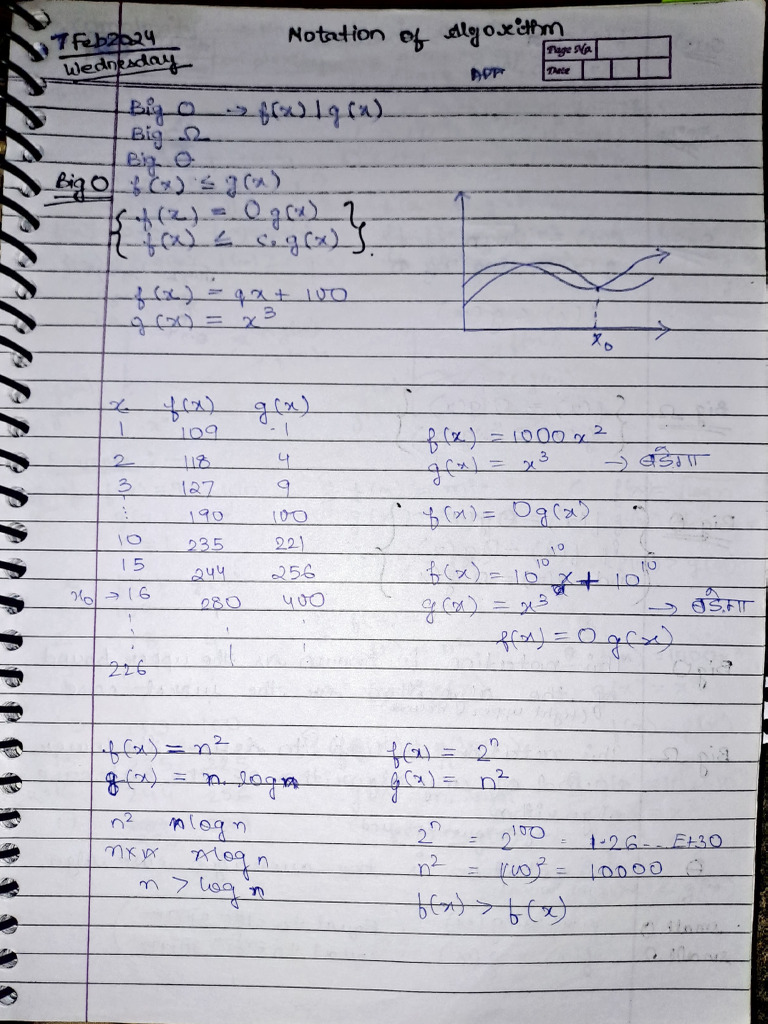 7 Feb 2024
Wednesday
Notation of Algorithm
Page No.
Date
Big O → f(x) | g(x)
Big Ω
Big Θ
Big O f(x) ≤ g(x)
{ f(x) = O g(x) }
{ f(x) ≤ c. g(x) }.
f(x) = 9x + 100
g(x) = x³
x₀
x f(x) g(x)
1 109 1
2 118 4
3 127 9
⋮ 190 100
10 235 221
15 244 256
x₀ → 16 280 400
⋮ ⋮ ⋮
226
f(x) = 1000x²
g(x) = x³ → बडेगा
f(x) = O g(x)
f(x) = 10^10^10 x + 10^10
g(x) = x³ → बडेगा
f(x) = O g(x)
f(x) = n²
g(x) = n. log n
n² n log n
n x n n log n
n > log n
f(x) = 2ⁿ
g(x) = n²
2ⁿ = 2¹⁰⁰ = 1.26... E+30
n² = (100)² = 10000
f(x) > f(x)